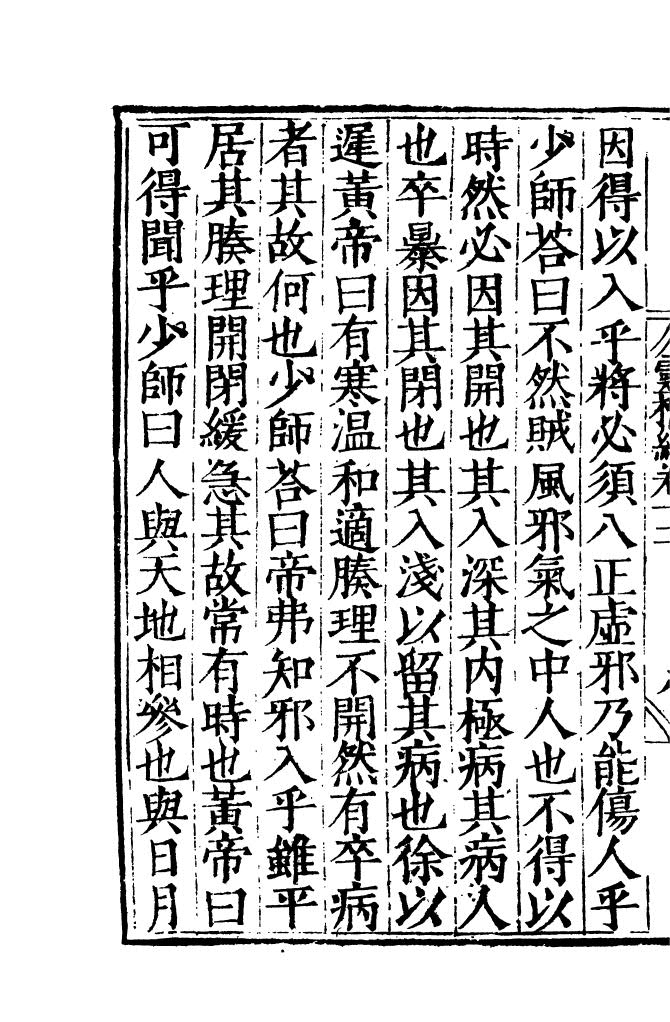 因得以入乎將必須八正虛邪乃能傷人乎
少師荅曰不然賊風邪氣之中人也不得以
時然必因其開也其入深其内極病其病人
也卒暴因其閉也其入淺以留其病也徐以
遲黃帝曰有寒温和適腠理不開然有卒病
者其故何也少師荅曰帝弗知邪入乎雖平
居其腠理開閉緩急其故常有時也黃帝曰
可得聞乎少師曰人與天地相參也與日月